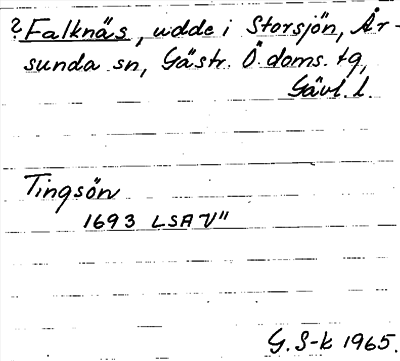 ? Falknäs, udde i Storsjön, År-
sunda sn, Gästr. Ö. doms. tg,
Gävl. l.
Tingsön
1693 LSA V"
G. S-k 1965.